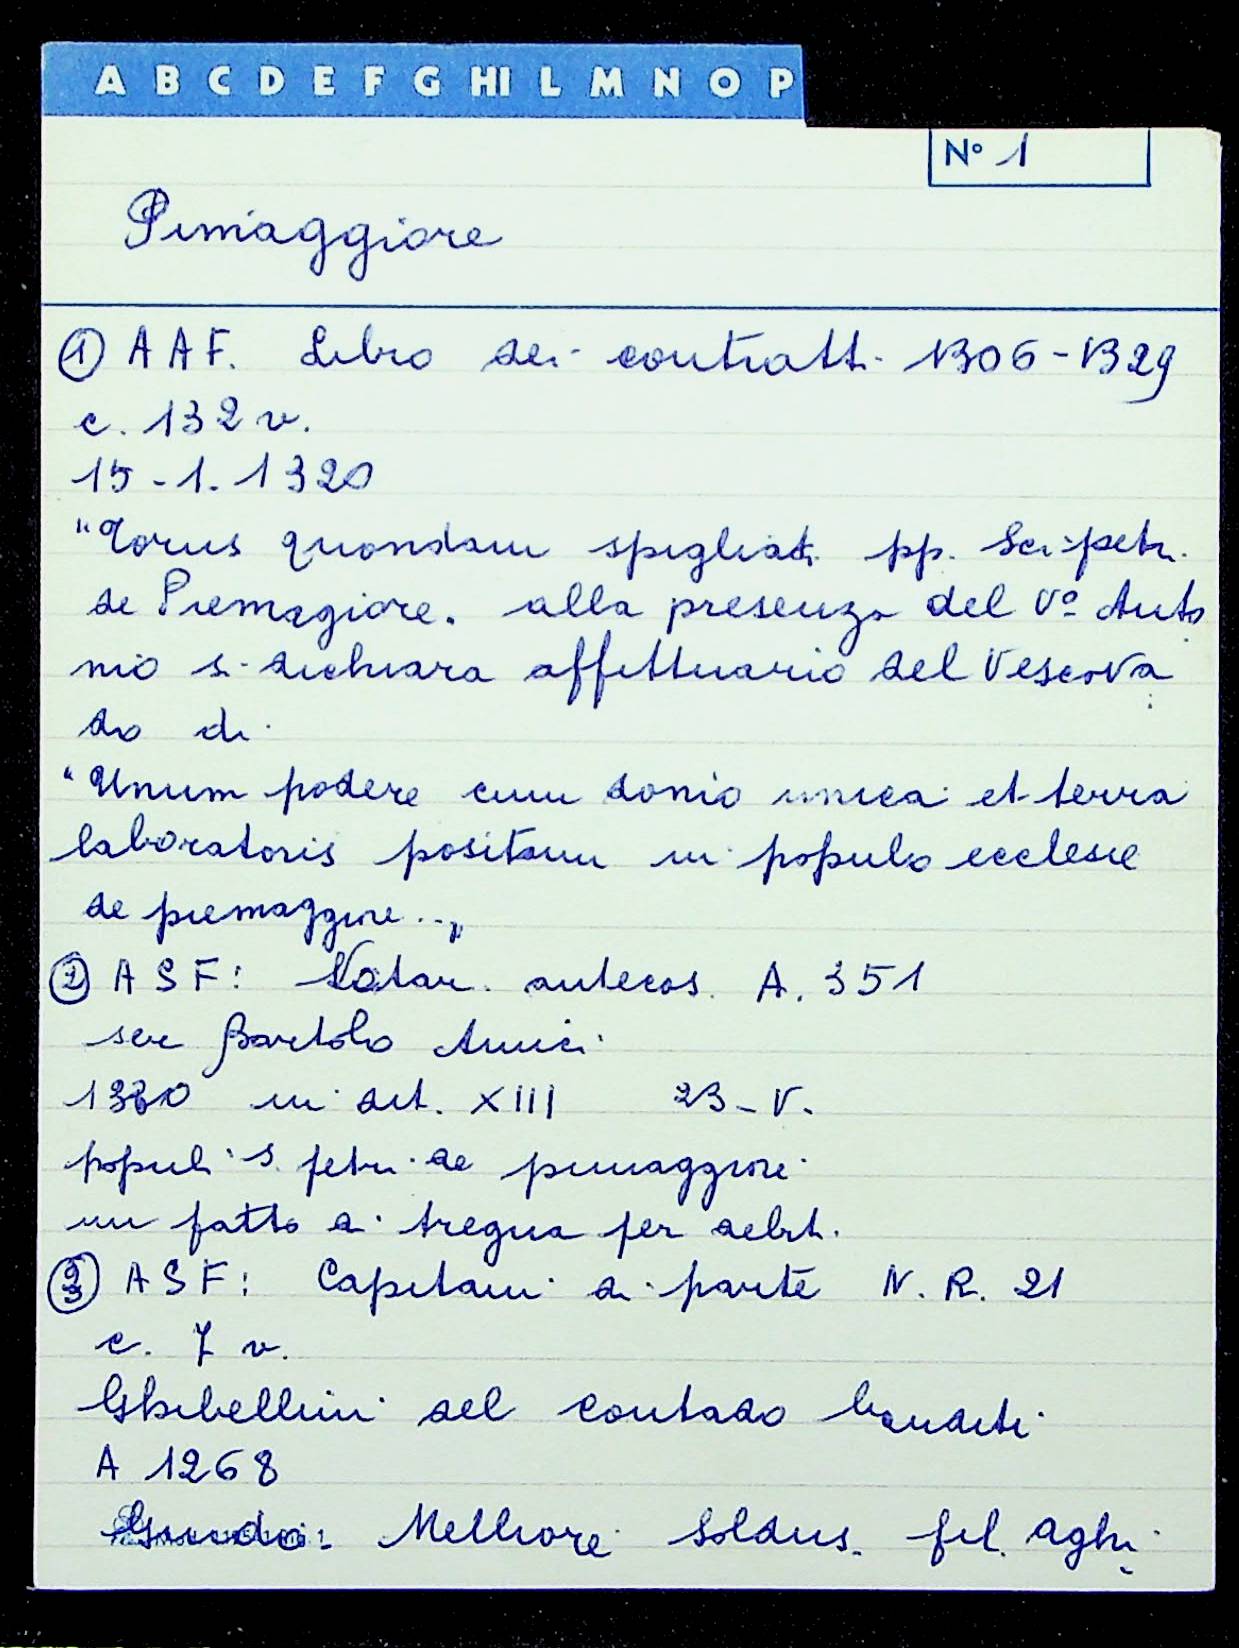 A B C D E F G HI L M N O P
N° 1
Pimaggiore
① AAF. Libro dei contratti 1306-1329
c. 132 v.
15-1.1320
"Torus quondam spigliati pp. Sci petri
de Piemagiore. alla presenza del V° Anto
nio si dichiara affittuario del Vescova
do di
"Unum podere cum domio unica et terra
laboratoris positam in populo ecclesie
de piemaggiore..."
② ASF: Notar. antecos. A. 351
ser Bartolo Amici
1330 indit. XIII 23-V.
populi s. petri de pimaggiore
un patto di tregua per debiti.
③ ASF: Capitani di parte N.R. 21
c. 7 v.
Ghibellini del contado banditi
A 1268
Guido: Melliore Soldus. fil. Aghi